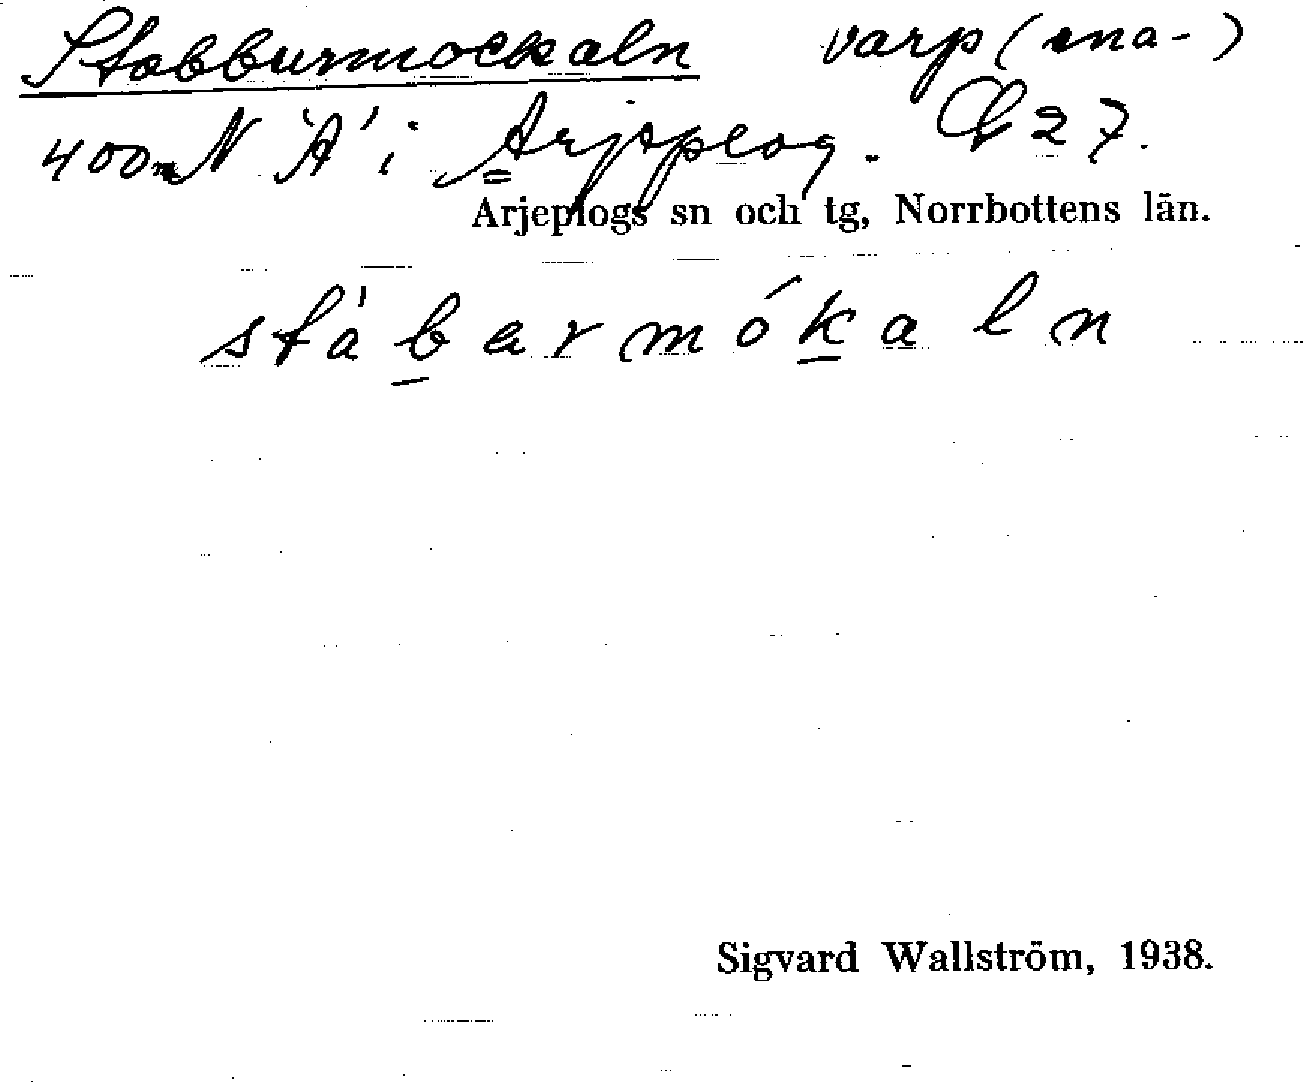 Stabburmockaln varp (ena-)
400m N 'A' i Arjeplog. G 27.
Arjeplogs sn och tg, Norrbottens län.
stábarmókaln
Sigvard Wallström, 1938.